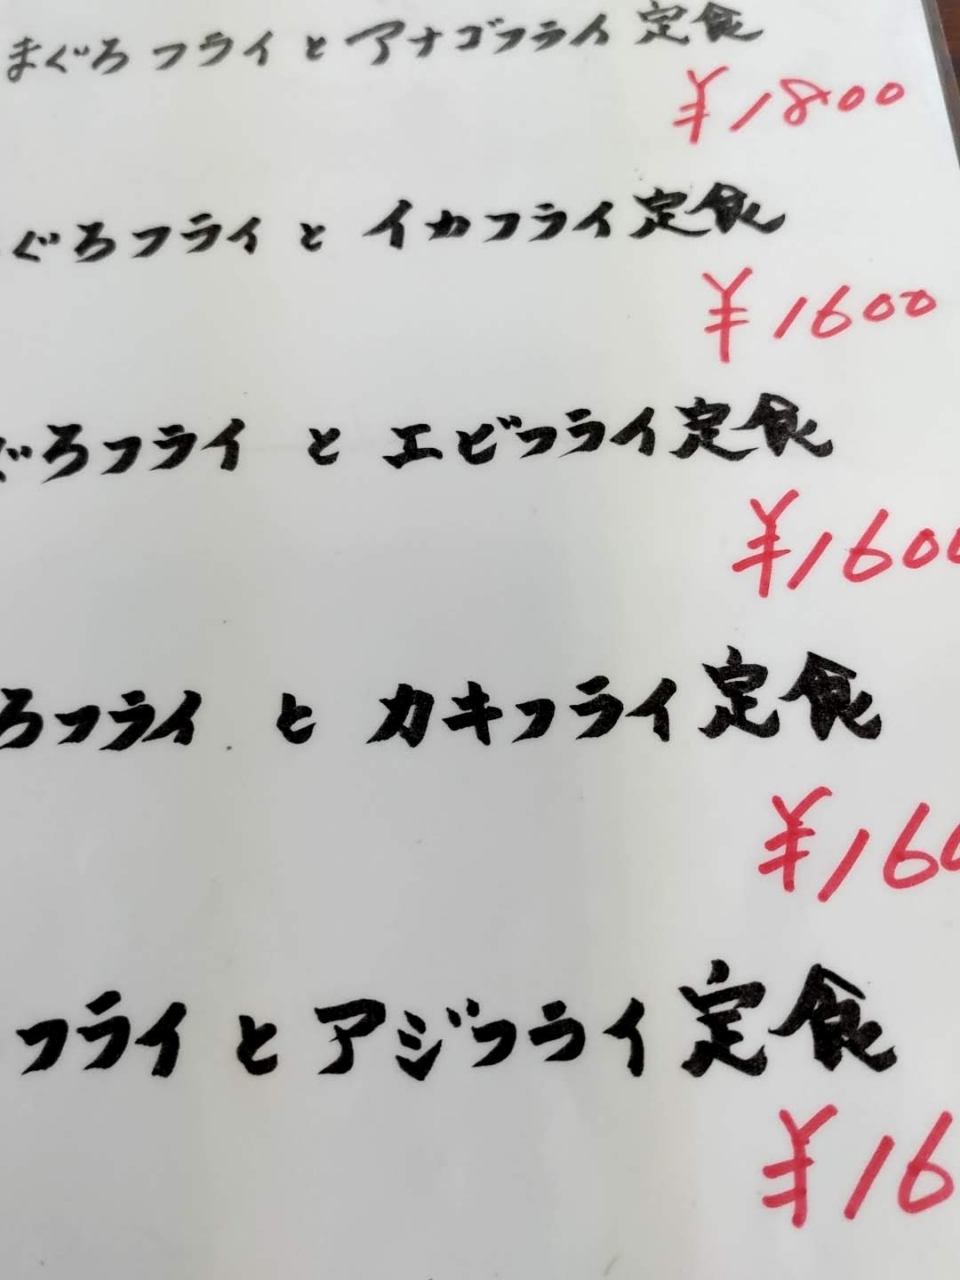 まぐろフライとアナゴフライ定食
¥1800
ぐろフライとイカフライ定食
¥1600
ぐろフライとエビフライ定食
¥1600
ろフライとカキフライ定食
¥160
フライとアジフライ定食
¥16